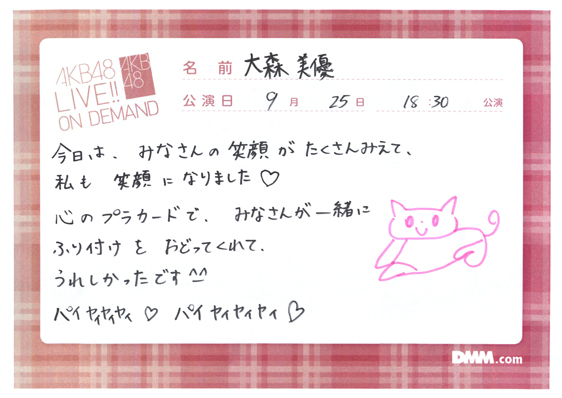 AKB48
LIVE!!
ON DEMAND
AKB
48
名 前 大森 美優
公演日 9月 25日 18:30 公演
今日は、みなさんの笑顔がたくさんみえて、
私も 笑顔になりました♡
心のプラカードで、みなさんが一緒に
ふり付けを おどってくれて、
うれしかったです^^
パイヤイヤイヤイ♡ パイヤイヤイヤイ♡
DMM.com